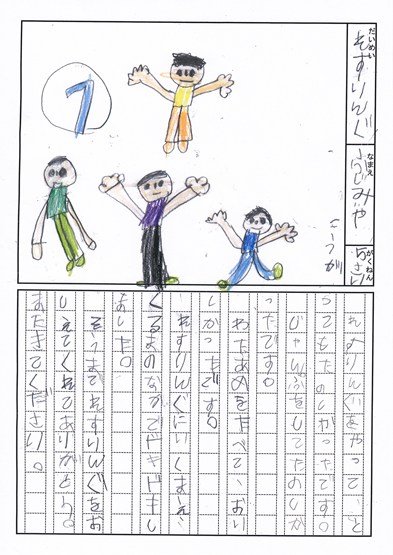 だいめい
れすりんぐ
なまえ
ふじみや
こうが
がくねん
5さい
1
れすりんぐをやって、と
ってもたのしかったです。
じゃんぷをしてたのしか
ったです。
わたあめをたべて、おい
しかったです。
れすりんぐにいくまえ、
くるまのなかでドキドキし
ました。
れすりんぐをお
しえてくれてありがとう。
またきてください。